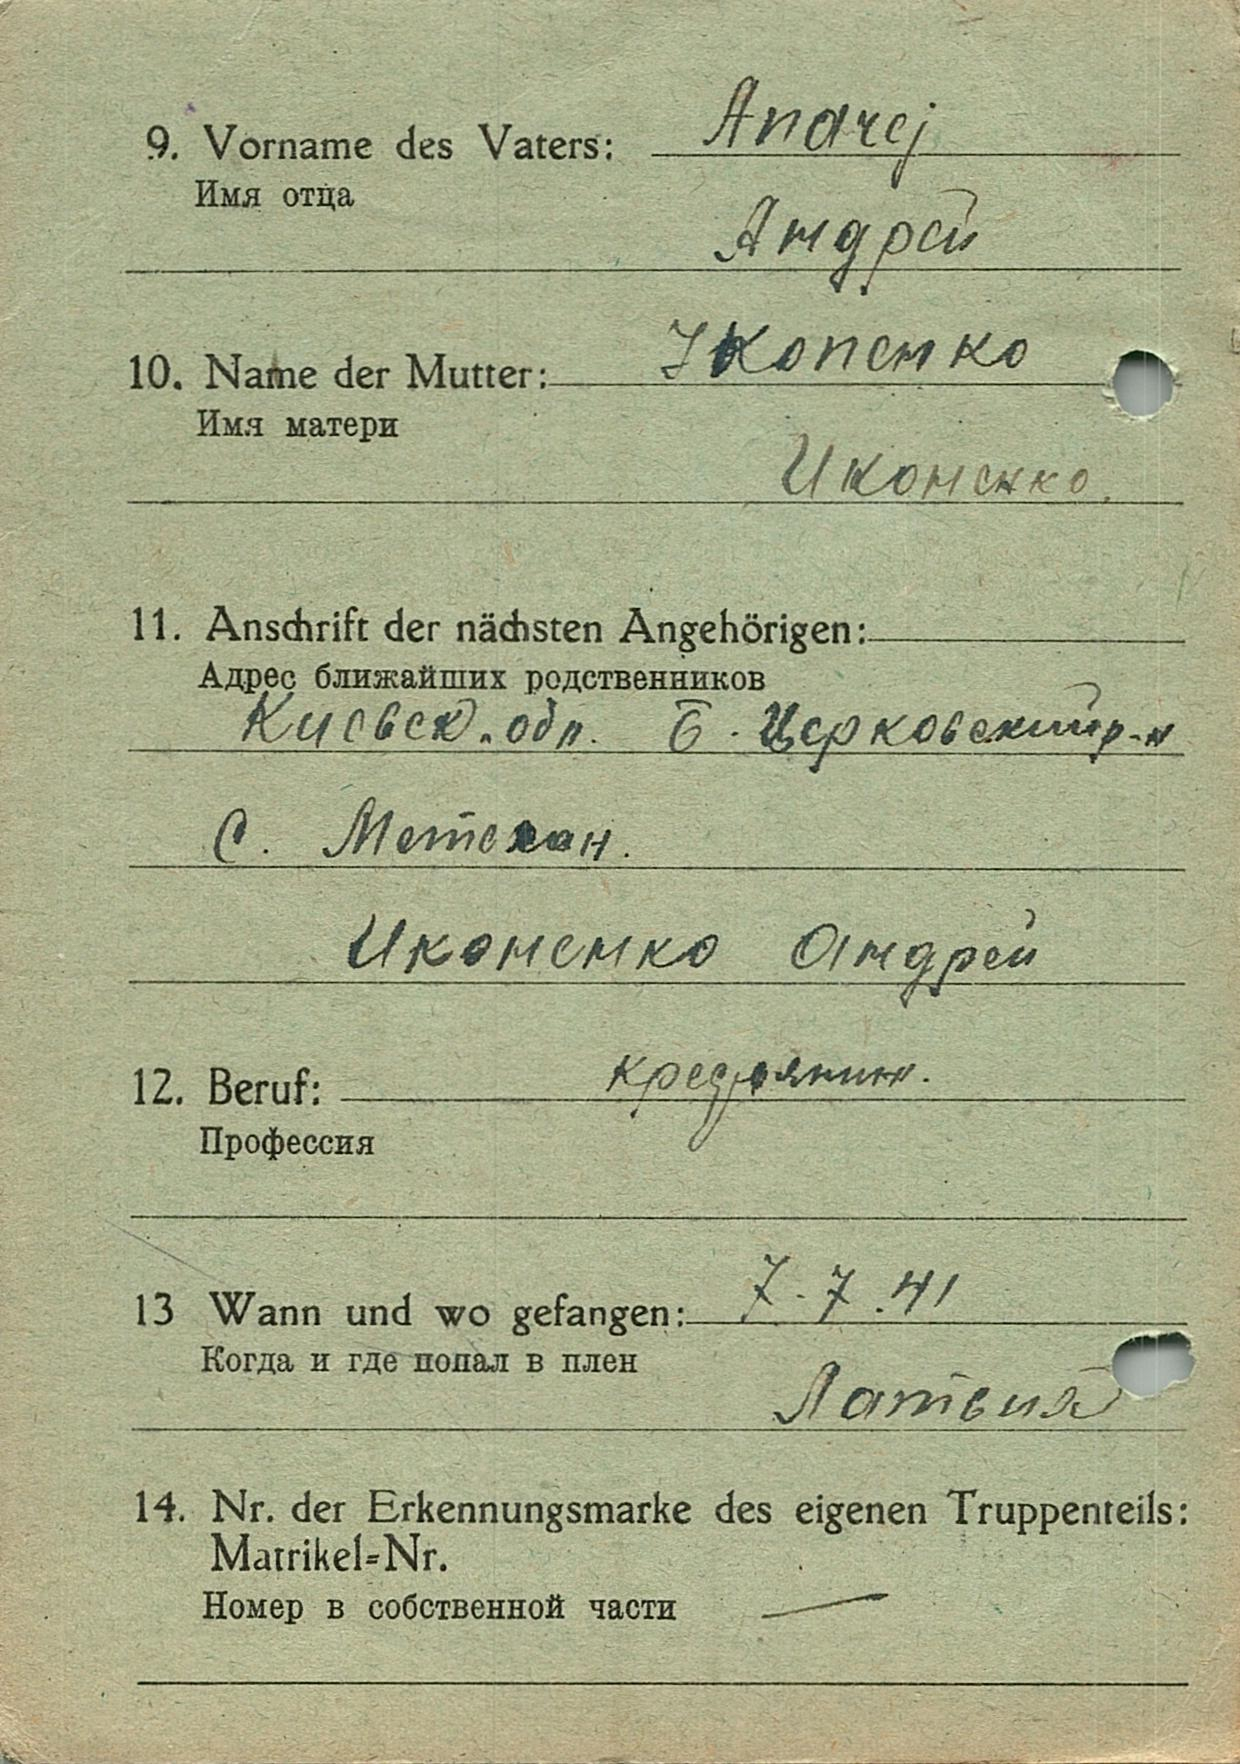 9. Vorname des Vaters: Andrej
Имя отца
Андрей
10. Name der Mutter: Ikonenko
Имя матери
Иконенко.
11. Anschrift der nächsten Angehörigen:
Адрес ближайших родственников
Киевск. обл. Б. Церковский р-н
С.
Иконенко Андрей
12. Beruf:
Профессия
13 Wann und wo gefangen: 7.7.41
Когда и где попал в плен
Латвия
14. Nr. der Erkennungsmarke des eigenen Truppenteils:
Matrikel=Nr.
Номер в собственной части —